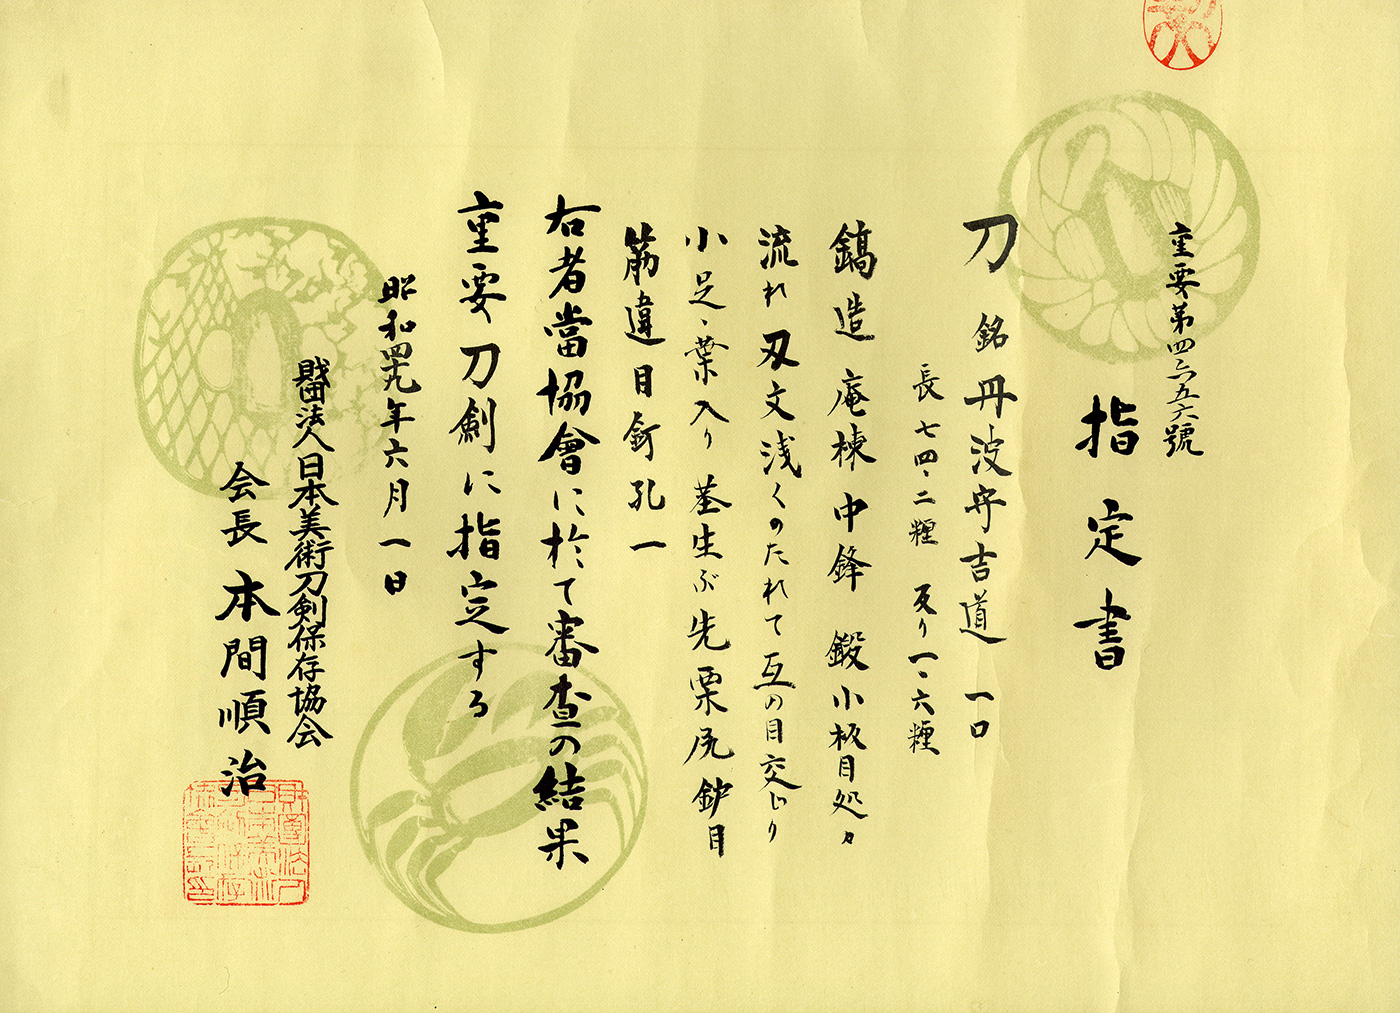 重要第四六五六號
指定書
刀 銘 丹波守吉道 一口
長 七四・二糎 反り一・六糎
鎬造 庵棟 中鋒 鍛 小板目処々
流れ 刃文 浅くのたれて互の目交じり
小足、葉入り 茎生ぶ 先栗尻 鈩目
筋違 目釘孔一
右者當協會に於て審査の結果
重要刀剣に指定する
昭和四十九年六月一日
財団法人日本美術刀剣保存協会
会長 本間順治